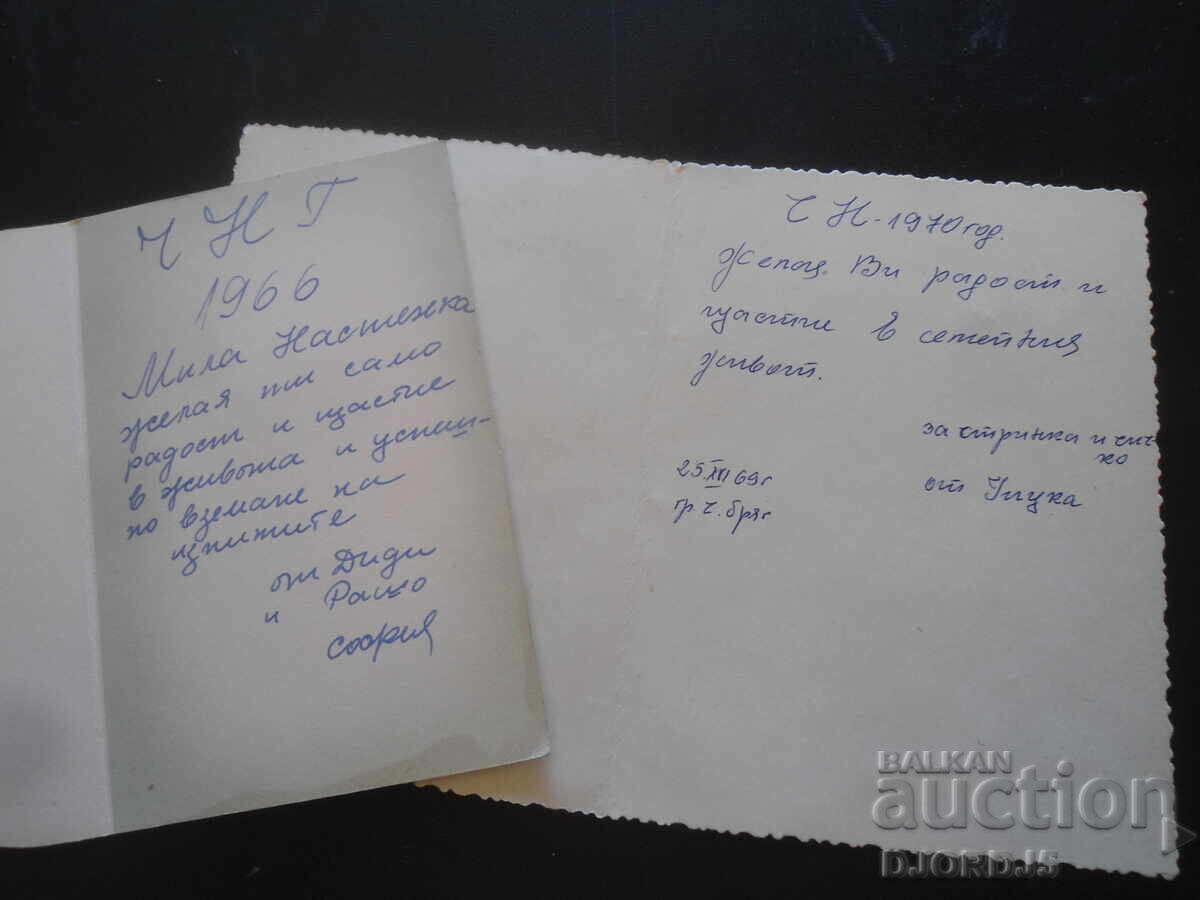 Ч Н Г
1966
Мила Настенка
желая ти само
радост и щастие
в живота и успеш-
но вземане на
изпитите
от Диди
и Рашо
София
Ч Н - 1970 год.
Желая Ви радост и
щастие в семейния
живот.
за стринка и чи-
чо
25.XII 69 г
гр. Ч. бряг
от
BALKAN
auction
DJORDJ5